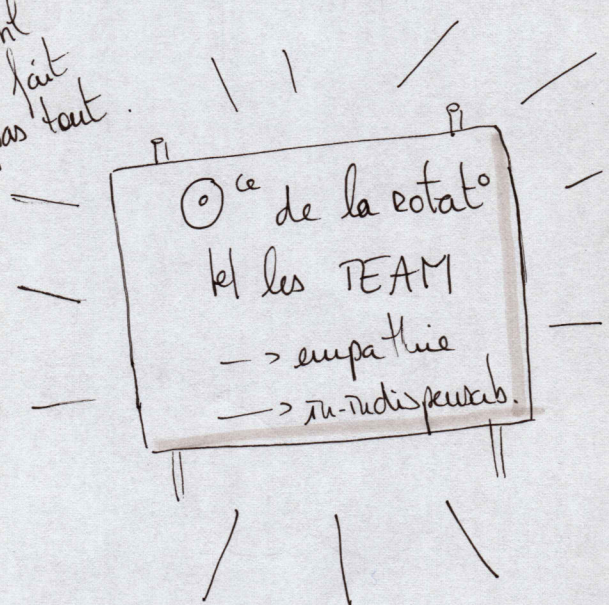 fait
pas tout.
⊙ce de la rotat°
les TEAM
-> empathie
-> in-indispensab.